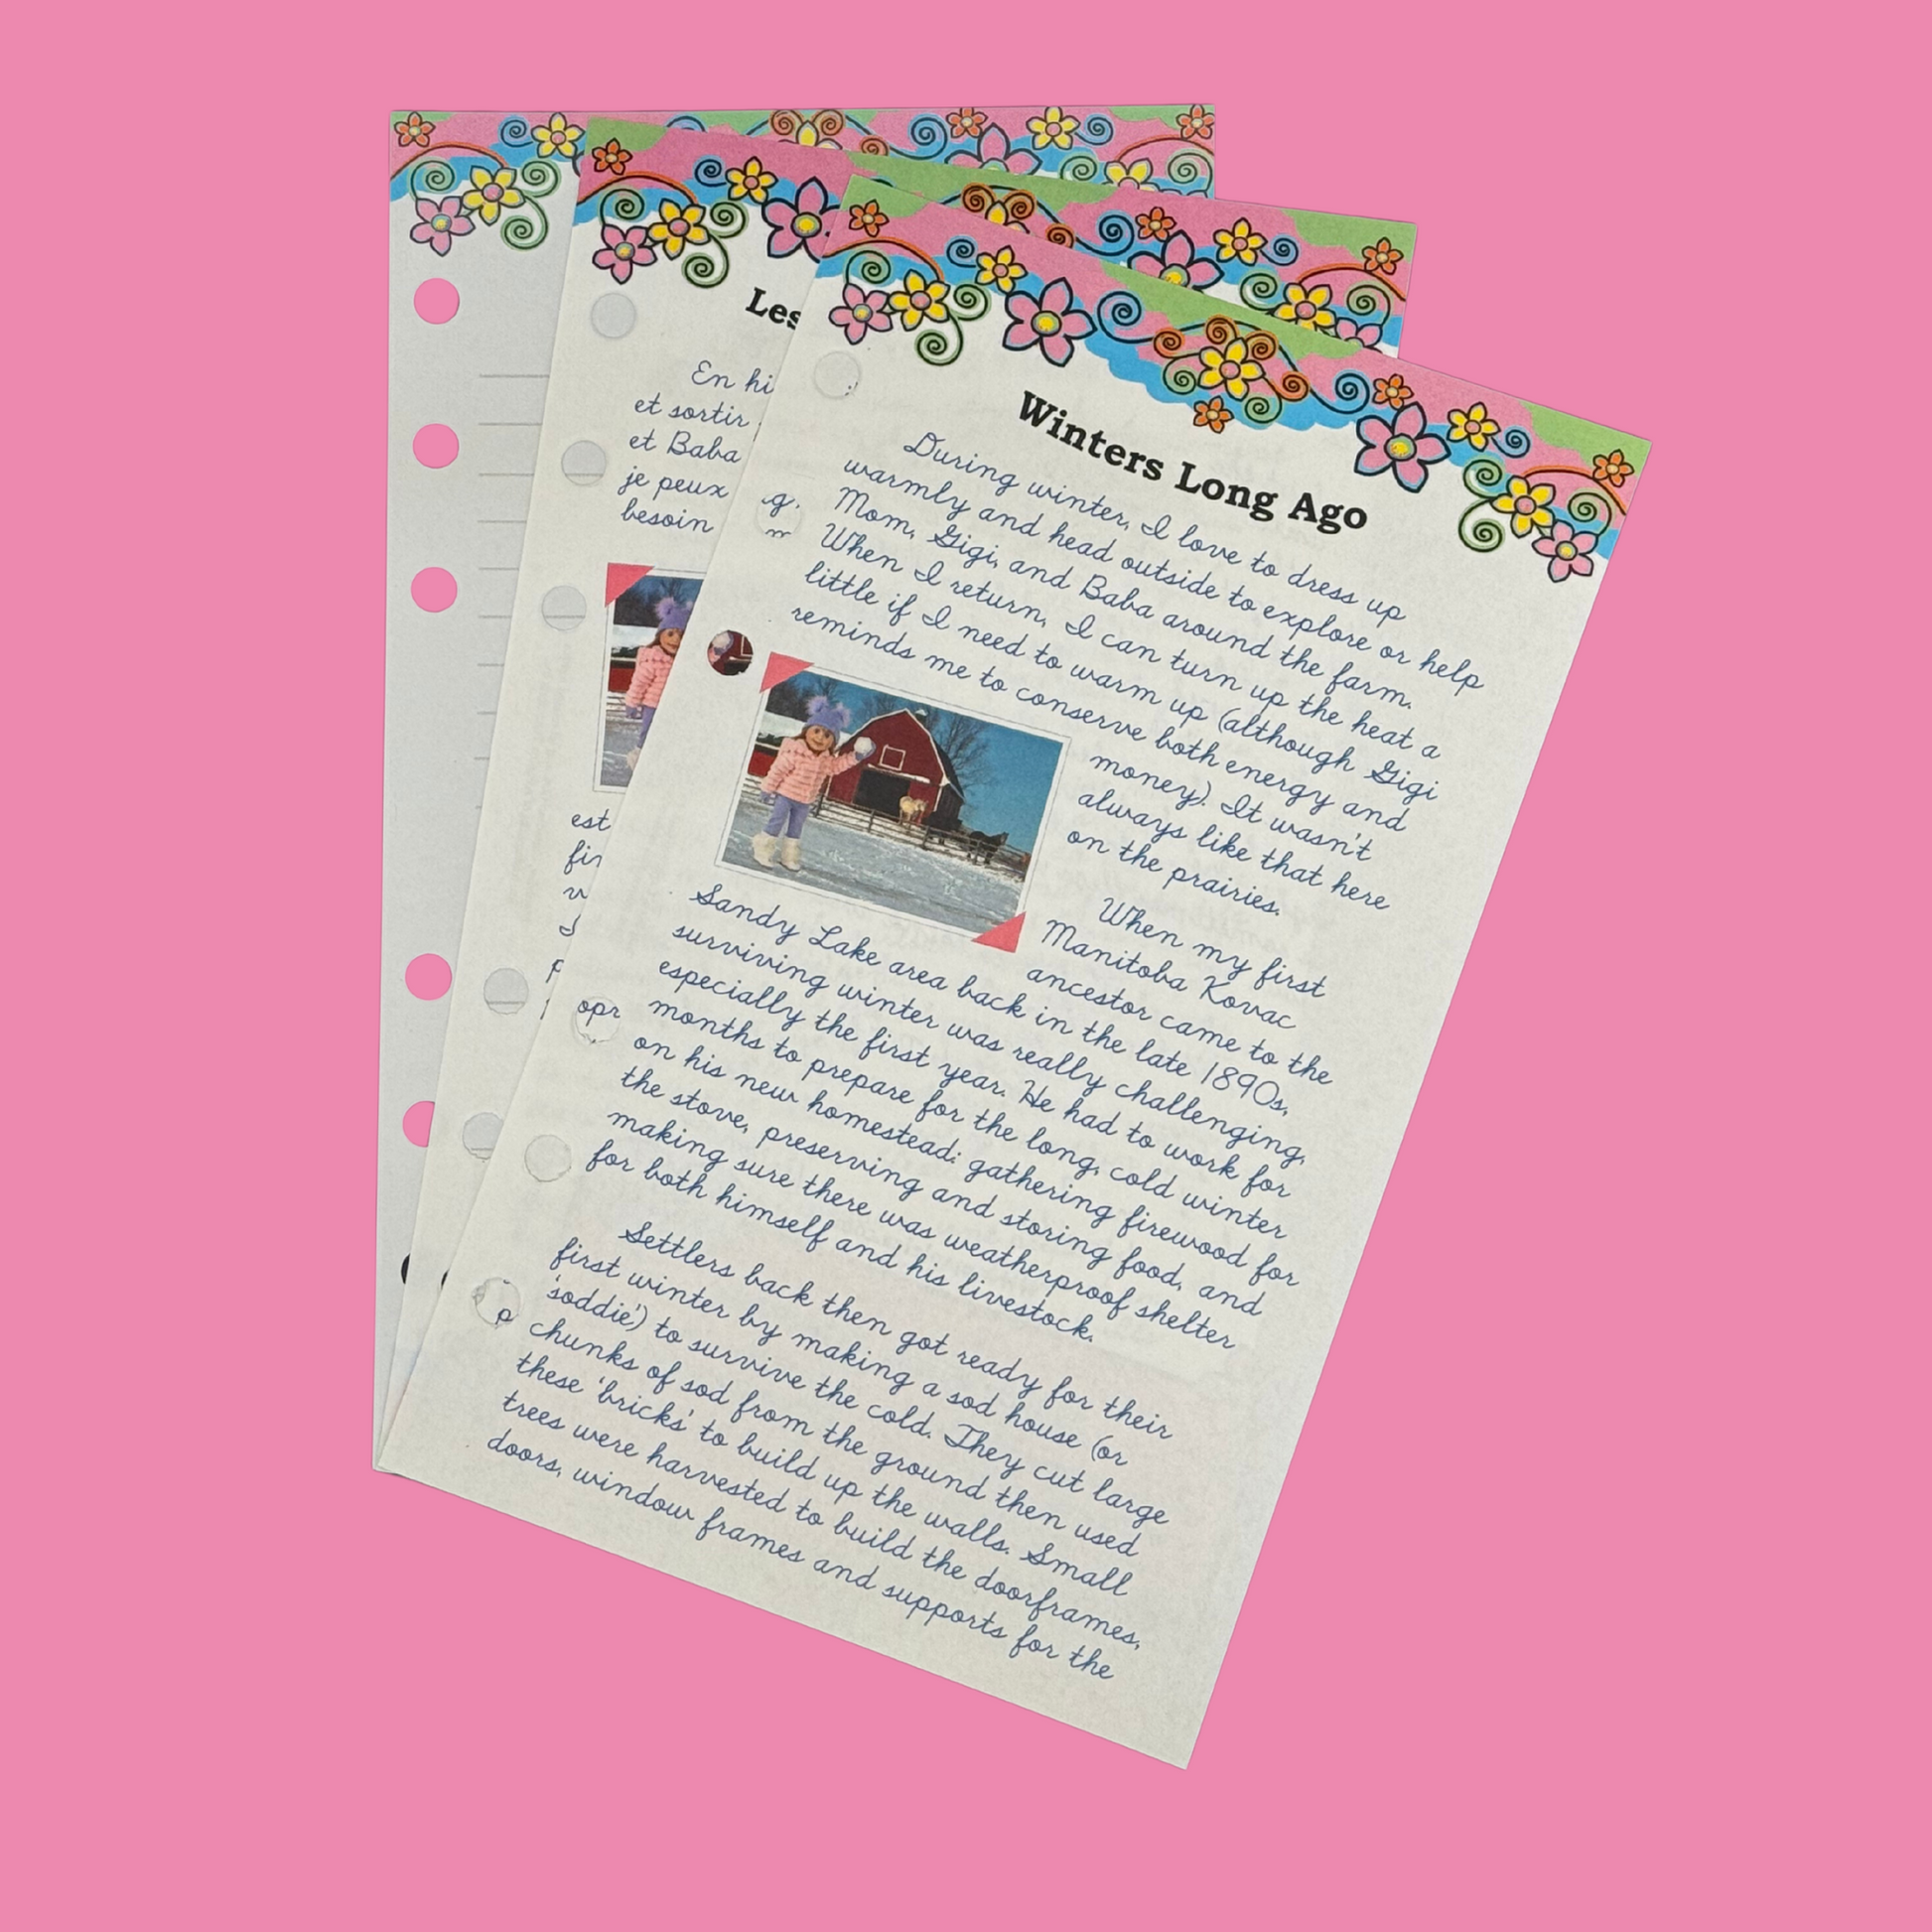 Winters Long Ago
During winter, I love to dress up
warmly and head outside to explore or help
Mom, Gigi, and Baba around the farm.
When I return, I can turn up the heat a
little if I need to warm up (although Gigi
reminds me to conserve both energy and
money). It wasn't
always like that here
on the prairies.
When my first
Manitoba Kovac
ancestor came to the
Sandy Lake area back in the late 1890s,
surviving winter was really challenging,
especially the first year. He had to work for
months to prepare for the long, cold winter
on his new homestead: gathering firewood for
the stove, preserving and storing food, and
making sure there was weatherproof shelter
for both himself and his livestock.
Settlers back then got ready for their
first winter by making a sod house (or
'soddie') to survive the cold. They cut large
chunks of sod from the ground then used
these 'bricks' to build up the walls. Small
trees were harvested to build the doorframes,
doors, window frames and supports for the
Les
En hi
et sortir
et Baba
je peux
besoin
est